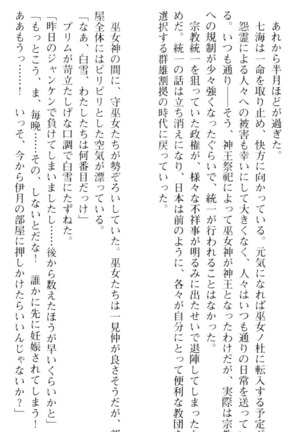 あれから半月ほどが過ぎた。
七海は一命を取り止め、快方に向かっている。元気になれば巫女ノ杜に転入する予定だ
怨霊による人々への被害も幸いにして大きくなく、人々はいつも通りの日常を送ってい
る。いつも通り　　そう、神王祭祀によって巫女神が神王となったわけだが、実際は宗教
への規制が少々強くなったぐらいで、統一が行われることはなかった。
宗教統一を狙っていた政権が、様々な不祥事が明るみに出たせいで退陣してしまった
めだ。統一の話は立ち消えになり、日本は前のように、各々が自分にとって便利な教団
選択する群雄割拠の時代に戻っていた。
巫女神の間に、守巫女たちが勢ぞろいしていた。巫女たちは一見仲が良さそうだが、部
屋全体にはピリピリとした空気が漂っている。
「なあ、白雪、わたしたちは何番目だっけ」
プリムが苛立たしげな口調で白雪にたずねた。
「昨日のジャンケンで負けてしまいましたし……後から数えたほうが早いくらいかと」
「もっとこう、ま、毎晩……その、しないとだな！　誰かに先に妊娠されてしまう！
ああもうっ……！　いっそ、今から伊月の部屋に押しかけたらいいんじゃないか？」